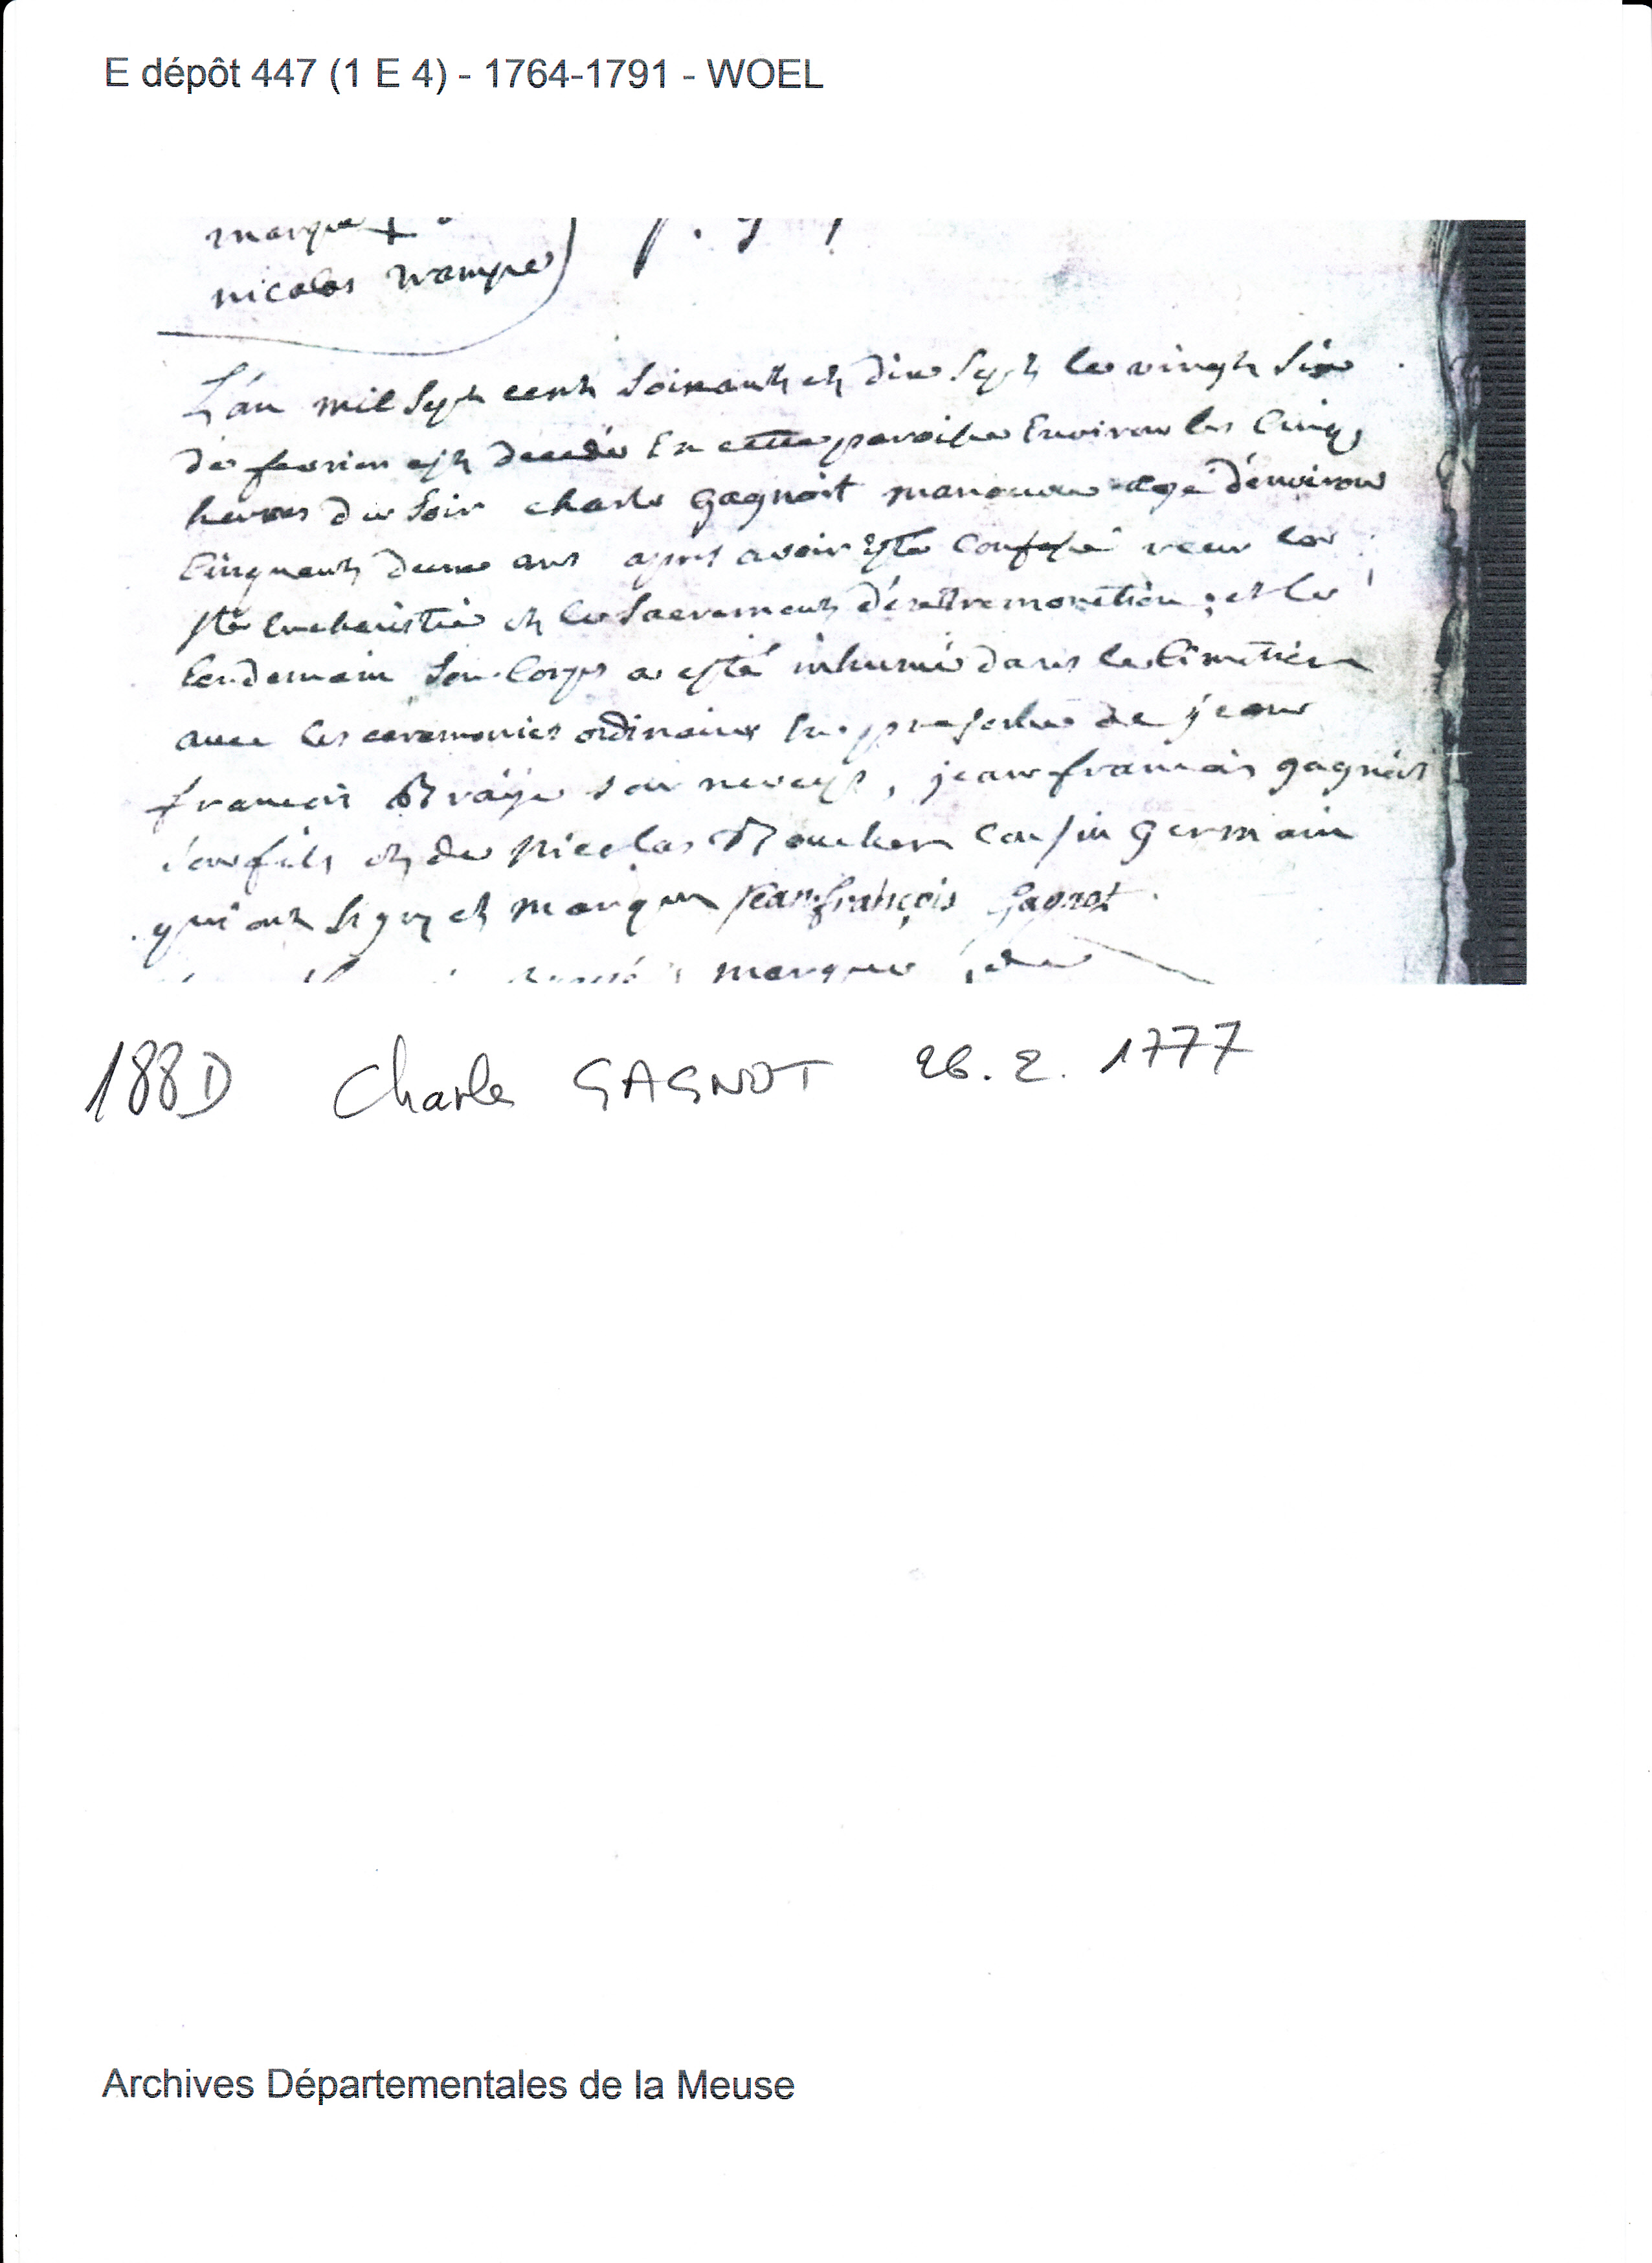 E dépôt 447 (1 E 4) - 1764-1791 - WOEL
marque
nicolas
L'an mil sept cent soixante et dix sept le vingt six
de fevrier est decedé En cette paroisse Environ les Cinq
heures du soir charle gagnot manouvre agé d'environ
Cinquante deux ans apres avoir esté Confessé receu la
ste Eucharistie et le sacrement d'extremonction ; et le
lendemain son Corps a esté inhumé dans le Cimetiere
avec les ceremonies ordinaires En presence de jean
francois son neveux, jean francois gagnot
son fils et de Nicolas cousin germain
qui ont signez et marquez jean françois Gagnot
marque de
188D Charle GAGNOT 26.2.1777
Archives Départementales de la Meuse